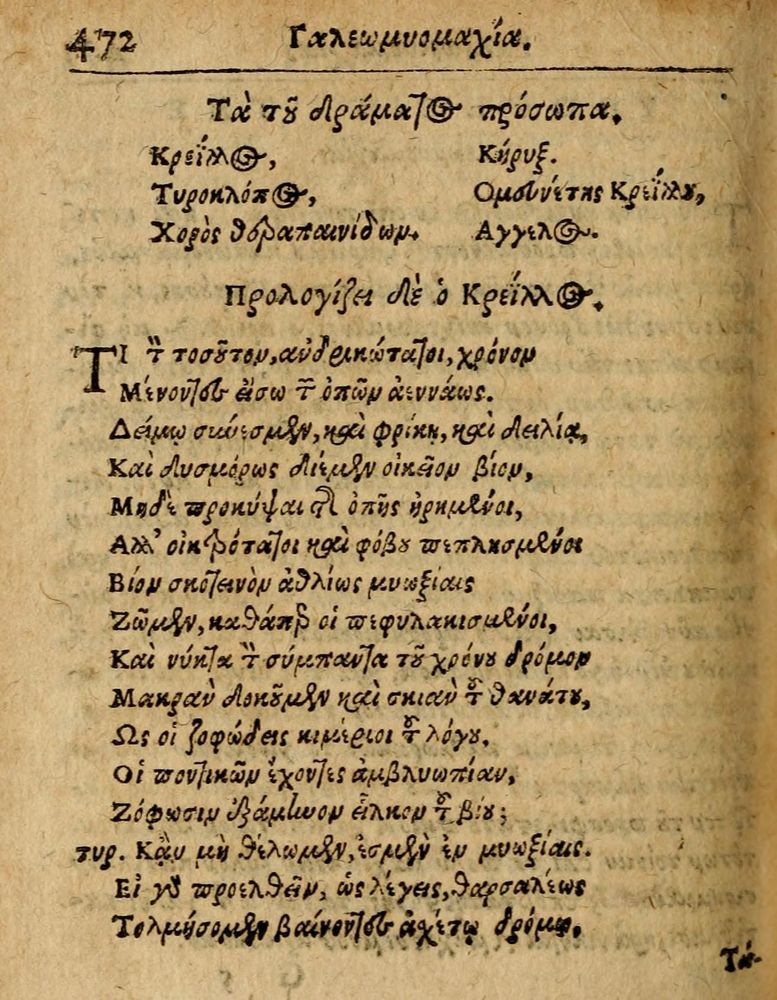 472 Γαλεωμυομαχία.
Τὰ τοῦ δράματος πρόσωπα.
Κρεΐλλος, Κήρυξ.
Τυροκλόπος, Ὁμοσυνέτης Κρεΐλλου,
Χορὸς θεραπαινίδων. Αγγελος.
Προλογίζει δὲ ὁ Κρεΐλλος.
ΤΙ τὸν τοσοῦτον, ἀνδρικώτατοι, χρόνον
Μένοντες εἴσω τῶν ὀπῶν ἀεννάως.
Δείμῳ σκύεσμεν, καὶ φρίκη, καὶ δειλίᾳ,
Καὶ δυσμόρως δίεμεν οἰκεῖον βίον,
Μηδὲ προκύψαι τῆς ὀπῆς ᾑρημένοι,
Αλλ' οἰκρότατοι καὶ φόβου πεπλησμένοι
Βίον σκοτεινὸν ἀθλίως μυωξίαις
Ζῶμεν, καθάπερ οἱ πεφυλακισμένοι,
Καὶ νύκτα τὸν σύμπαντα τοῦ χρόνου δρόμον
Μακρὰν δοκοῦμεν καὶ σκιὰν τοῦ θανάτου,
Ως οἱ ζοφώδεις κιμέριοι τοῦ λόγου,
Οἱ ποντικῶν ἔχοντες ἀμβλυωπίαν,
Ζόφωσιν ἑξάμηνον εἷλκον τοῦ βίου;
τυρ. Κἂν μὴ θέλωμεν, ἐσμὲν ἐν μυωξίαις.
Εἰ γὰρ προελθεῖν, ὡς λέγεις, θαρσαλέως
Τολμήσομεν βαίνοντες ἀχέτῳ δρόμῳ,
Τά-